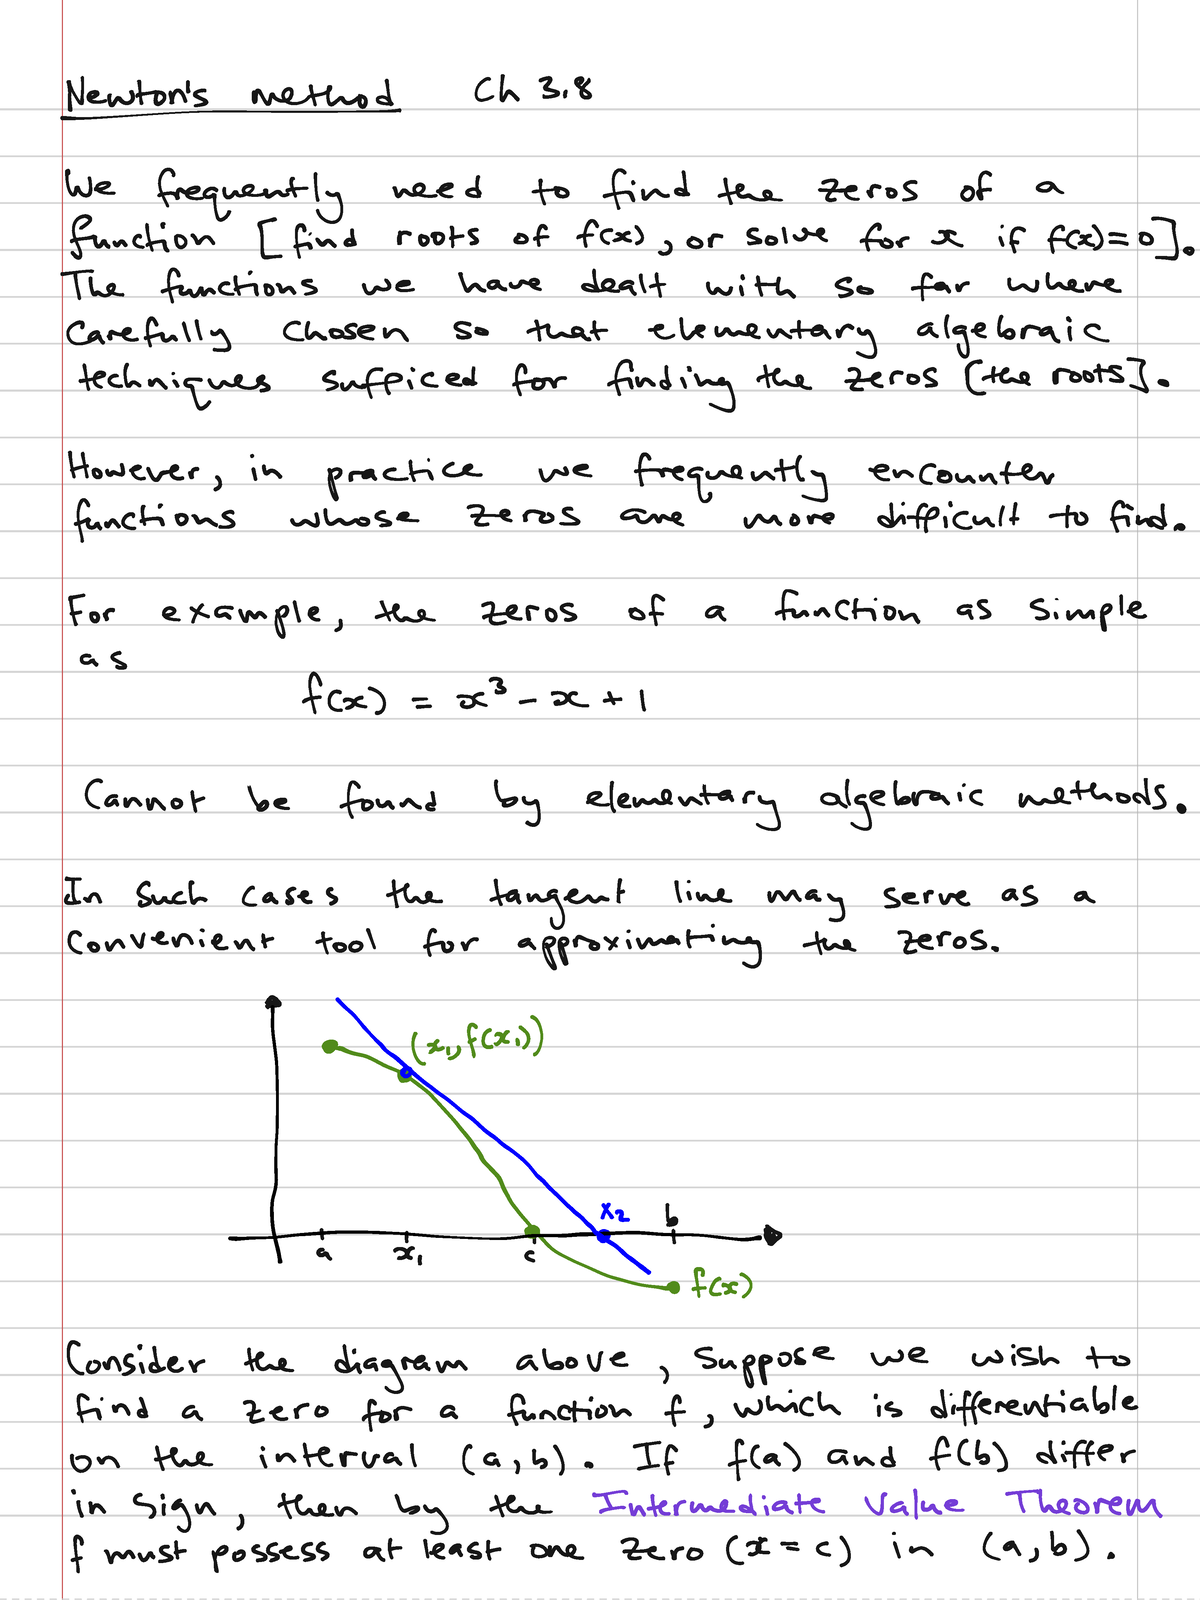 Newton's method Ch 3.8
We frequently need to find the zeros of a
function [find roots of f(x), or solve for x if f(x)=0].
The functions we have dealt with so far where
carefully chosen so that elementary algebraic
techniques sufficed for finding the zeros [the roots].
However, in practice we frequently encounter
functions whose zeros are more difficult to find.
For example, the zeros of a function as simple
as
f(x) = x³ - x + 1
Cannot be found by elementary algebraic methods.
In such cases the tangent line may serve as a
convenient tool for approximating the zeros.
(x₁, f(x₁))
x₂ b
a x₁ c
f(x)
Consider the diagram above, suppose we wish to
find a zero for a function f, which is differentiable
on the interval (a,b). If f(a) and f(b) differ
in sign, then by the Intermediate Value Theorem
f must possess at least one zero (x=c) in (a,b).